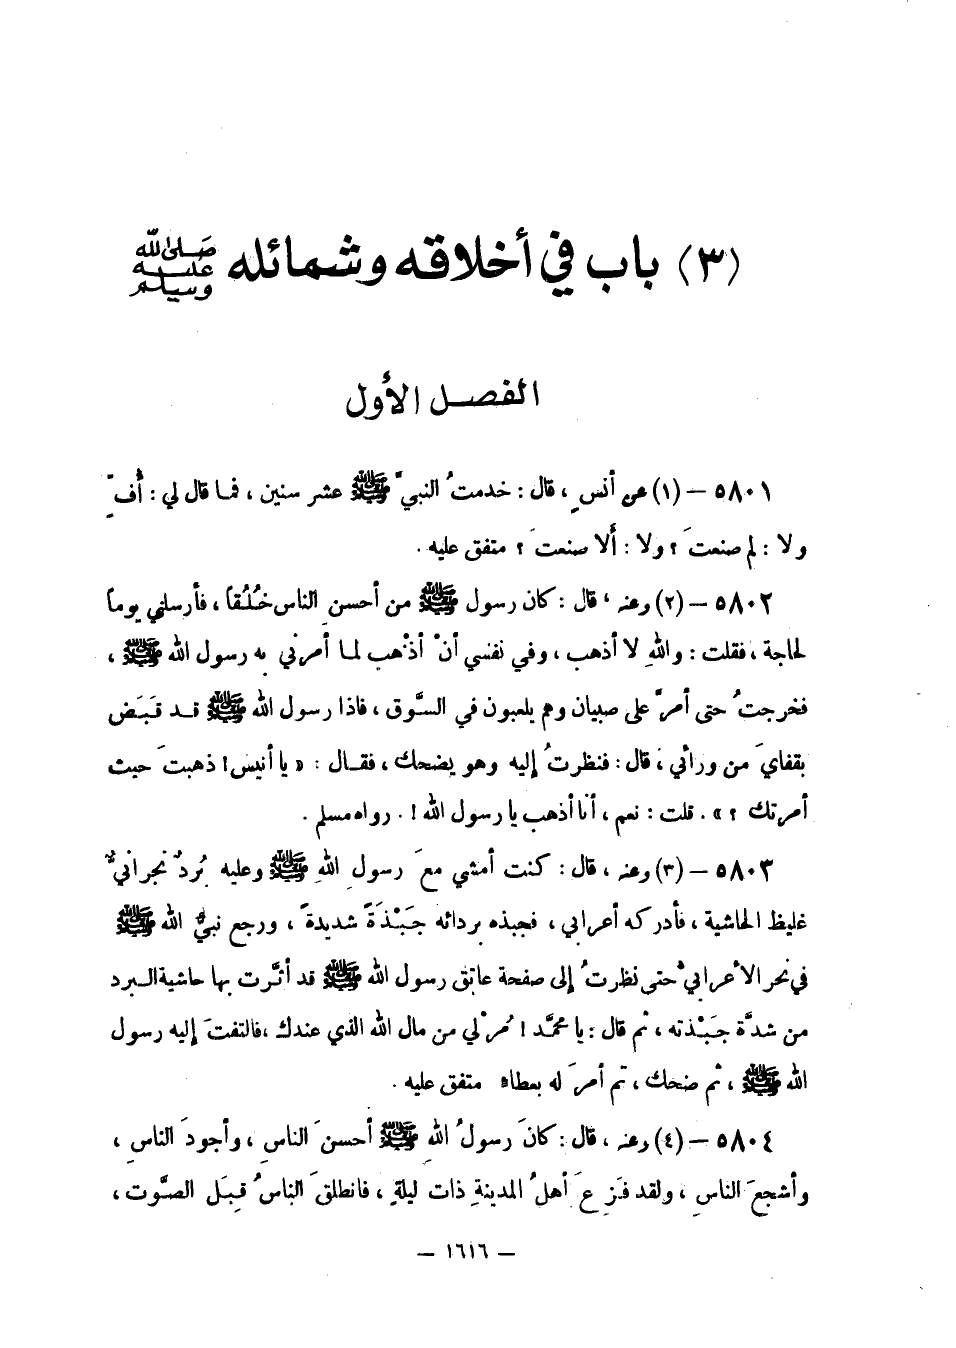 (٣) باب في أخلاقه وشمائله صلى الله عليه وسلم
الفصل الأول
٥٨٠١ – (١) عن أنسٍ ، قال : خدمتُ النبيَّ ﷺ عشر سنين ، فما قال لي : أُفٍّ
ولا : لم صنعتَ ؟ ولا : ألا صنعتَ ؟ متفق عليه .
٥٨٠٢ – (٢) وعنه ، قال : كان رسول ﷺ من أحسنِ الناس خُلُقاً ، فأرسلني يوماً
لحاجة ، فقلت : واللهِ لا أذهب ، وفي نفسي أنْ أذْهب لما أمرني به رسول الله ﷺ ،
فخرجتُ حتى أمرَّ على صبيان وهم يلعبون في السُّوق ، فاذا رسول الله ﷺ قد قَبَض
بقفايَ من ورائي ، قال : فنظرتُ إليه وهو يضحك ، فقال : « يا أنيس ! ذهبتَ حيث
أمرتك ؟ » . قلت : نعم ، أنا أذهب يا رسول الله ! . رواه مسلم .
٥٨٠٣ – (٣) وعنه ، قال : كنت أمشي معَ رسولِ اللهِ ﷺ وعليه بُردٌ نجرانيٌّ
غليظ الحاشية ، فأدركه أعرابي ، فجبذه بردائه جَبْذَةً شديدةً ، ورجع نبيُّ الله ﷺ
في نحر الأعرابيِّ حتى نظرتُ إلى صفحة عاتق رسول الله ﷺ قد أثَّرت بها حاشية البرد
من شدَّة جَبْذته ، ثم قال : يا محمَّد ! مُرْ لي من مال الله الذي عندك ، فالتفتَ إليه رسول
الله ﷺ ، ثم ضحك ، ثم أمرَ له بعطاء متفق عليه .
٥٨٠٤ – (٤) وعنه ، قال : كانَ رسولُ اللهِ ﷺ أحسنَ الناسِ ، وأجودَ الناسِ ،
وأشجعَ الناسِ ، ولقد فَزِعَ أهلُ المدينةِ ذات ليلةٍ ، فانطلقَ الناسُ قِبَل الصَّوت ،
– ١٦١٦ –